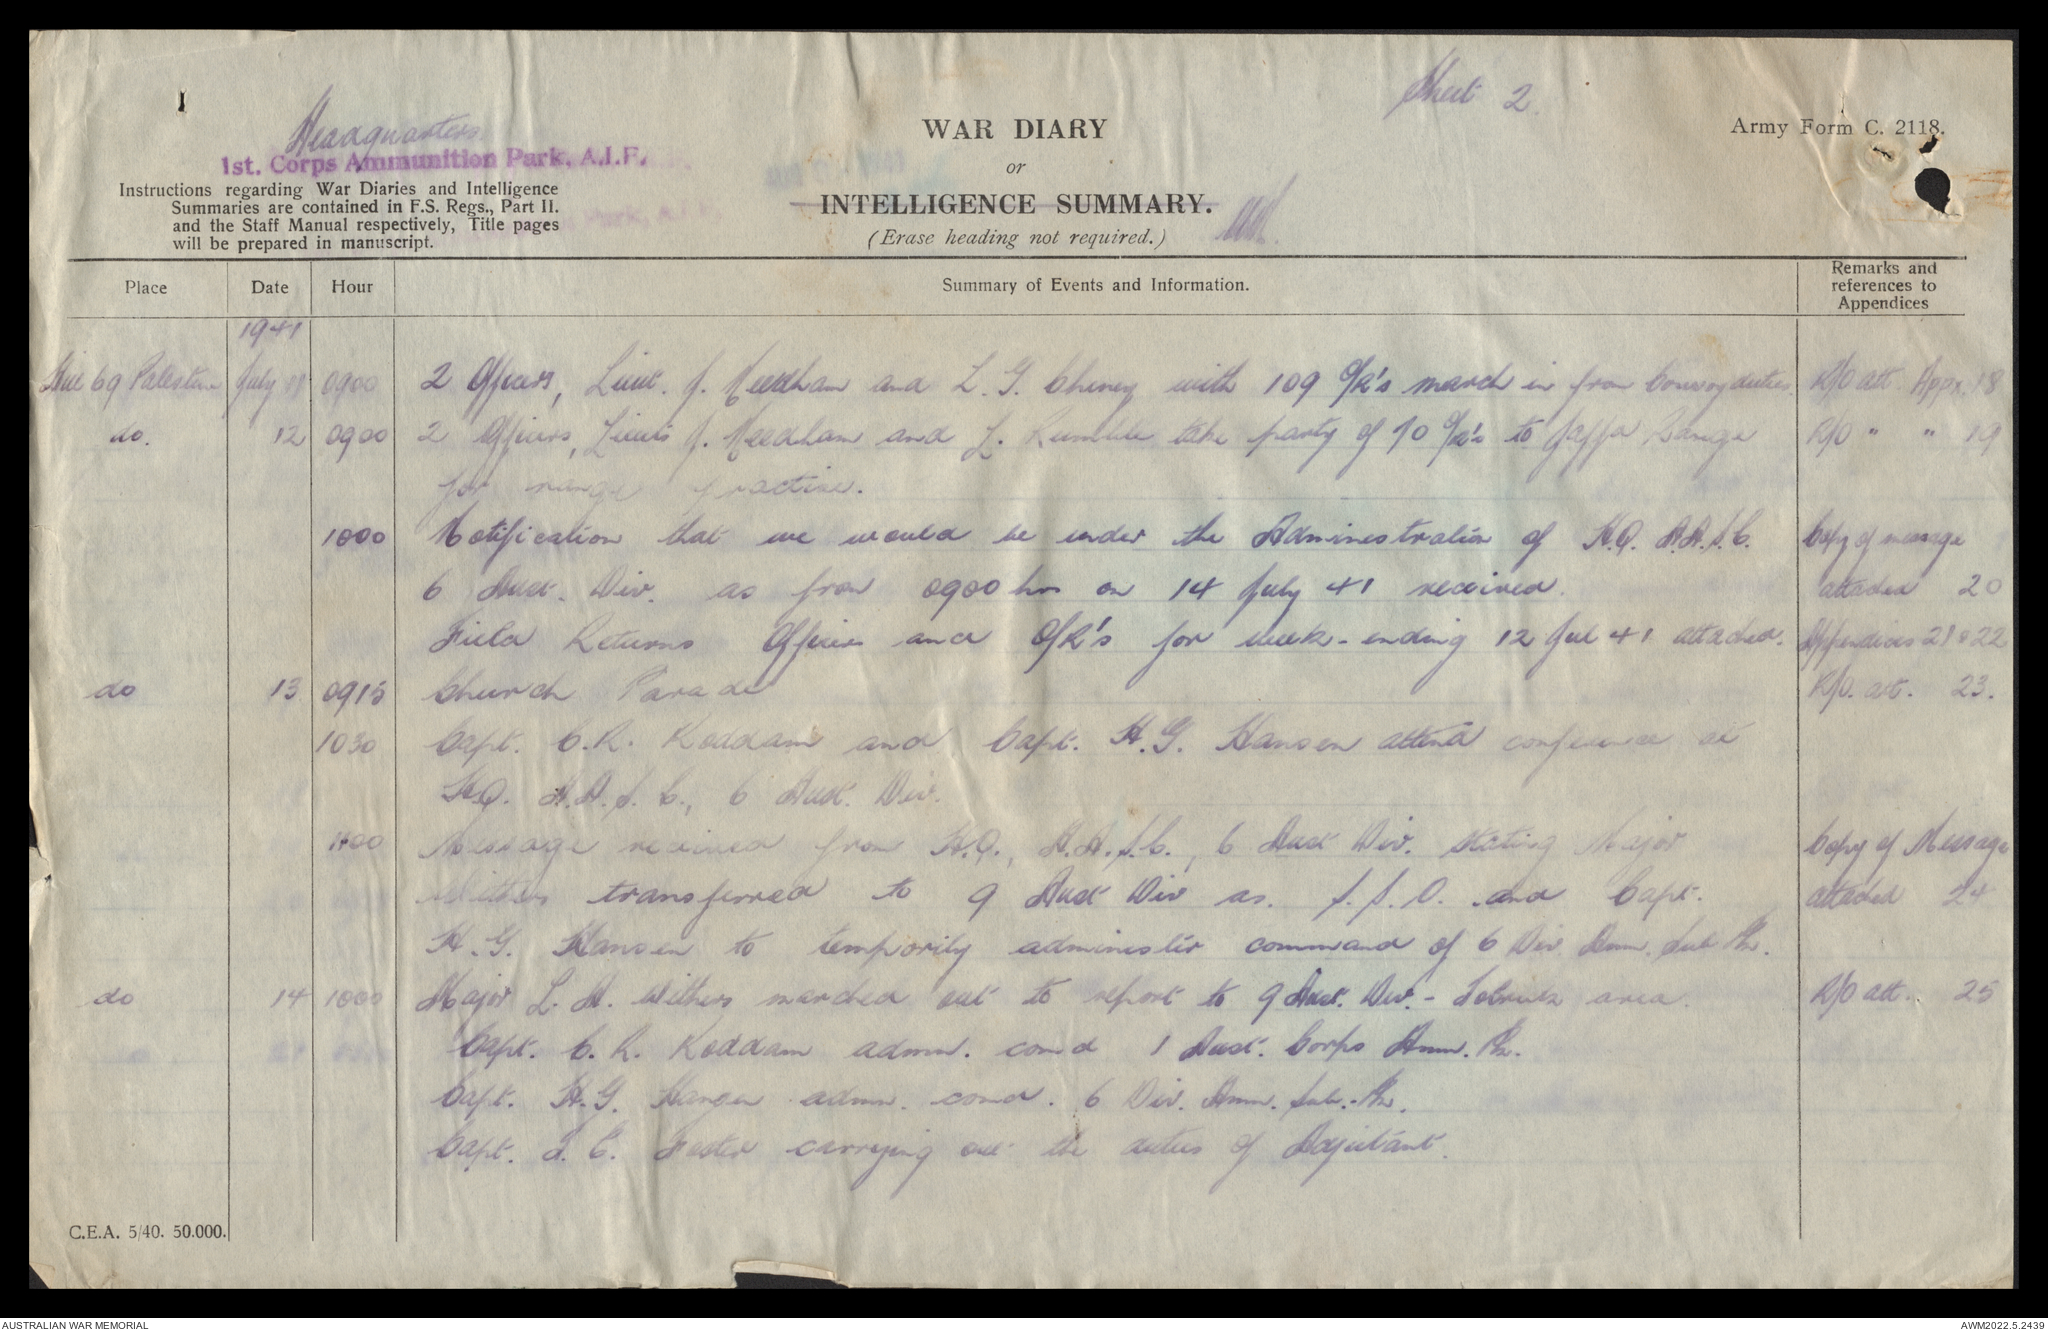 Sheet 2.
Headquarters
1st. Corps Ammunition Park, A.I.F.
WAR DIARY
or
INTELLIGENCE SUMMARY.
(Erase heading not required.)
Army Form C. 2118.
Instructions regarding War Diaries and Intelligence
Summaries are contained in F.S. Regs., Part II.
and the Staff Manual respectively, Title pages
will be prepared in manuscript.
Place Date Hour Summary of Events and Information. Remarks and references to Appendices
1941
Hill 69 Palestine July 11 0900 2 Officers, Lieut. J. Needham and L. G. Cheney with 109 O/R's march in from Convoy duties. R/O att. Appx. 18
do. 12 0900 2 Officers, Lieuts J. Needham and L. Rumble take party of 70 O/R's to Jaffa Range R/O " " 19
for range practise.
1000 Notification that we would be under the Administration of H.Q. A.A.S.C. Copy of message
6 Aust. Div. as from 0900 hrs on 14 July 41 received. attached 20
Field Returns Officers and O/R's for week-ending 12 Jul 41 attached. Appendices 21 & 22
do 13 0915 Church Parade R/O. att. 23.
1030 Capt. C.R. Roddam and Capt. H.G. Hansen attend conference at
H.Q. A.A.S.C., 6 Aust. Div.
1400 Message received from H.Q., A.A.S.C., 6 Aust Div. stating Major Copy of Message
Withers transferred to 9 Aust Div as. S.S.O. and Capt. attached 24
H.G. Hansen to temporily administer command of 6 Div. Amm. Sub Pk.
do 14 1000 Major L.A. Withers marched out to report to 9 Aust. Div. - Tobruk area. R/O att. 25
Capt. C.R. Roddam admin. comd 1 Aust. Corps Amm. Pk.
Capt. H.G. Hansen admin. comd. 6 Div. Amm. Sub.-Pk.
Capt. Foster carrying out the duties of Adjutant.
C.E.A. 5/40. 50.000.
AUSTRALIAN WAR MEMORIAL
AWM2022.5.2439